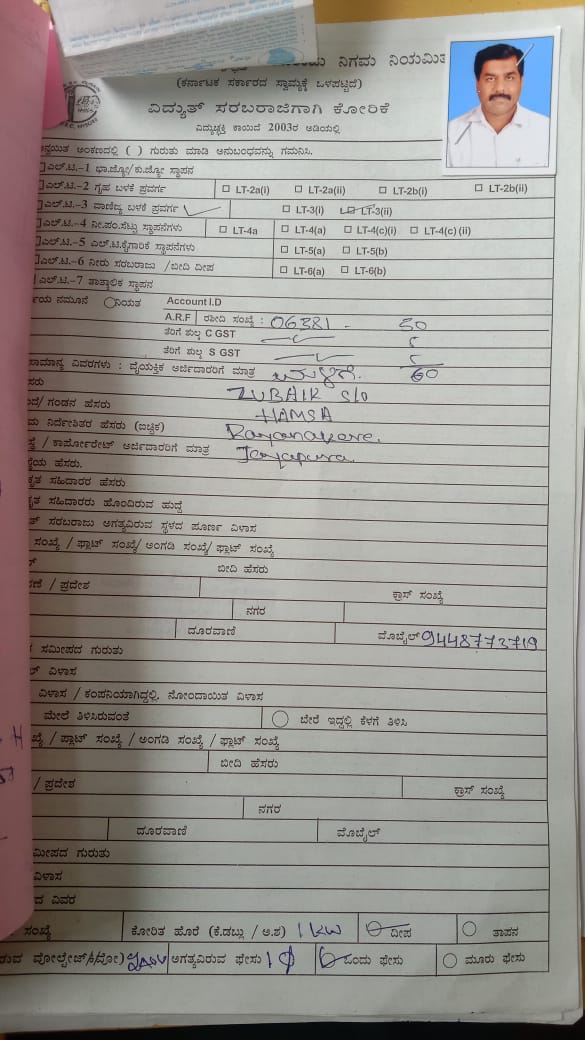 ನಿಗಮ ನಿಯಮಿತ
(ಕರ್ನಾಟಕ ಸರ್ಕಾರದ ಸ್ವಾಮ್ಯಕ್ಕೆ ಒಳಪಟ್ಟಿದೆ)
ವಿದ್ಯುತ್ ಸರಬರಾಜಿಗಾಗಿ ಕೋರಿಕೆ
ವಿದ್ಯುಚ್ಛಕ್ತಿ ಕಾಯಿದೆ 2003ರ ಅಡಿಯಲ್ಲಿ
ಅಂಕಣದಲ್ಲಿ ( ) ಗುರುತು ಮಾಡಿ ಅನುಬಂಧವನ್ನು ಗಮನಿಸಿ.
ಎಲ್.ಟಿ.-1 ಭಾ.ಜ್ಯೋ/ಕು.ಜ್ಯೋ ಸ್ಥಾಪನ
ಎಲ್.ಟಿ.-2 ಗೃಹ ಬಳಕೆ ಪ್ರವರ್ಗ LT-2a(i) LT-2a(ii) LT-2b(i) LT-2b(ii)
ಎಲ್.ಟಿ.-3 ವಾಣಿಜ್ಯ ಬಳಕೆ ಪ್ರವರ್ಗ LT-3(i) LT-3(ii)
ಎಲ್.ಟಿ.-4 ನೀ.ಪಂ.ಸೆಟ್ಟು ಸ್ಥಾಪನೆಗಳು LT-4a LT-4(a) LT-4(c)(i) LT-4(c) (ii)
ಎಲ್.ಟಿ.-5 ಎಲ್.ಟಿ.ಕೈಗಾರಿಕೆ ಸ್ಥಾಪನೆಗಳು LT-5(a) LT-5(b)
ಎಲ್.ಟಿ.-6 ನೀರು ಸರಬರಾಜು /ಬೀದಿ ದೀಪ LT-6(a) LT-6(b)
ಎಲ್.ಟಿ.-7 ತಾತ್ಕಾಲಿಕ ಸ್ಥಾಪನ
ನಮೂನೆ ನಿಯತ Account I.D
A.R.F ರಶೀದಿ ಸಂಖ್ಯೆ : 06381 50
ತೆರಿಗೆ ಶುಲ್ಕ C GST 5
ತೆರಿಗೆ ಶುಲ್ಕ S GST 5
ಸಾಮಾನ್ಯ ವಿವರಗಳು : ವೈಯಕ್ತಿಕ ಅರ್ಜಿದಾರರಿಗೆ ಮಾತ್ರ 60
ZUBAIR S/o
ಗಂಡನ ಹೆಸರು HAMSA
ನಿರ್ದೇಶಿತರ ಹೆಸರು (ಐಚ್ಛಿಕ)
/ ಕಾರ್ಪೋರೇಟ್ ಅರ್ಜಿದಾರರಿಗೆ ಮಾತ್ರ Jayapura.
ಹೆಸರು.
ಸಹಿದಾರರ ಹೆಸರು
ಸಹಿದಾರರು ಹೊಂದಿರುವ ಹುದ್ದೆ
ಸರಬರಾಜು ಅಗತ್ಯವಿರುವ ಸ್ಥಳದ ಪೂರ್ಣ ವಿಳಾಸ
ಸಂಖ್ಯೆ / ಫ್ಲಾಟ್ ಸಂಖ್ಯೆ/ ಅಂಗಡಿ ಸಂಖ್ಯೆ/ ಫ್ಲಾಟ್ ಸಂಖ್ಯೆ
ಬೀದಿ ಹೆಸರು
/ ಪ್ರದೇಶ ಕ್ರಾಸ್ ಸಂಖ್ಯೆ
ನಗರ
ದೂರವಾಣಿ ಮೊಬೈಲ್ 9448773719
ಸಮೀಪದ ಗುರುತು
ವಿಳಾಸ
ವಿಳಾಸ / ಕಂಪನಿಯಾಗಿದ್ದಲ್ಲಿ, ನೋಂದಾಯಿತ ವಿಳಾಸ
ಮೇಲೆ ತಿಳಿಸಿರುವಂತೆ ಬೇರೆ ಇದ್ದಲ್ಲಿ ಕೆಳಗೆ ತಿಳಿಸಿ
/ ಪ್ಲಾಟ್ ಸಂಖ್ಯೆ / ಅಂಗಡಿ ಸಂಖ್ಯೆ / ಫ್ಲಾಟ್ ಸಂಖ್ಯೆ
ಬೀದಿ ಹೆಸರು
/ ಪ್ರದೇಶ ಕ್ರಾಸ್ ಸಂಖ್ಯೆ
ನಗರ
ದೂರವಾಣಿ ಮೊಬೈಲ್
ಗುರುತು
ವಿಳಾಸ
ವಿವರ
ಸಂಖ್ಯೆ ಕೋರಿತ ಹೊರೆ (ಕೆ.ಡಬ್ಲು / ಅ.ಶ) 1 KW ದೀಪ ತಾಪನ
ಅಗತ್ಯವಿರುವ ಫೇಸು 1 Φ ಒಂದು ಫೇಸು ಮೂರು ಫೇಸು